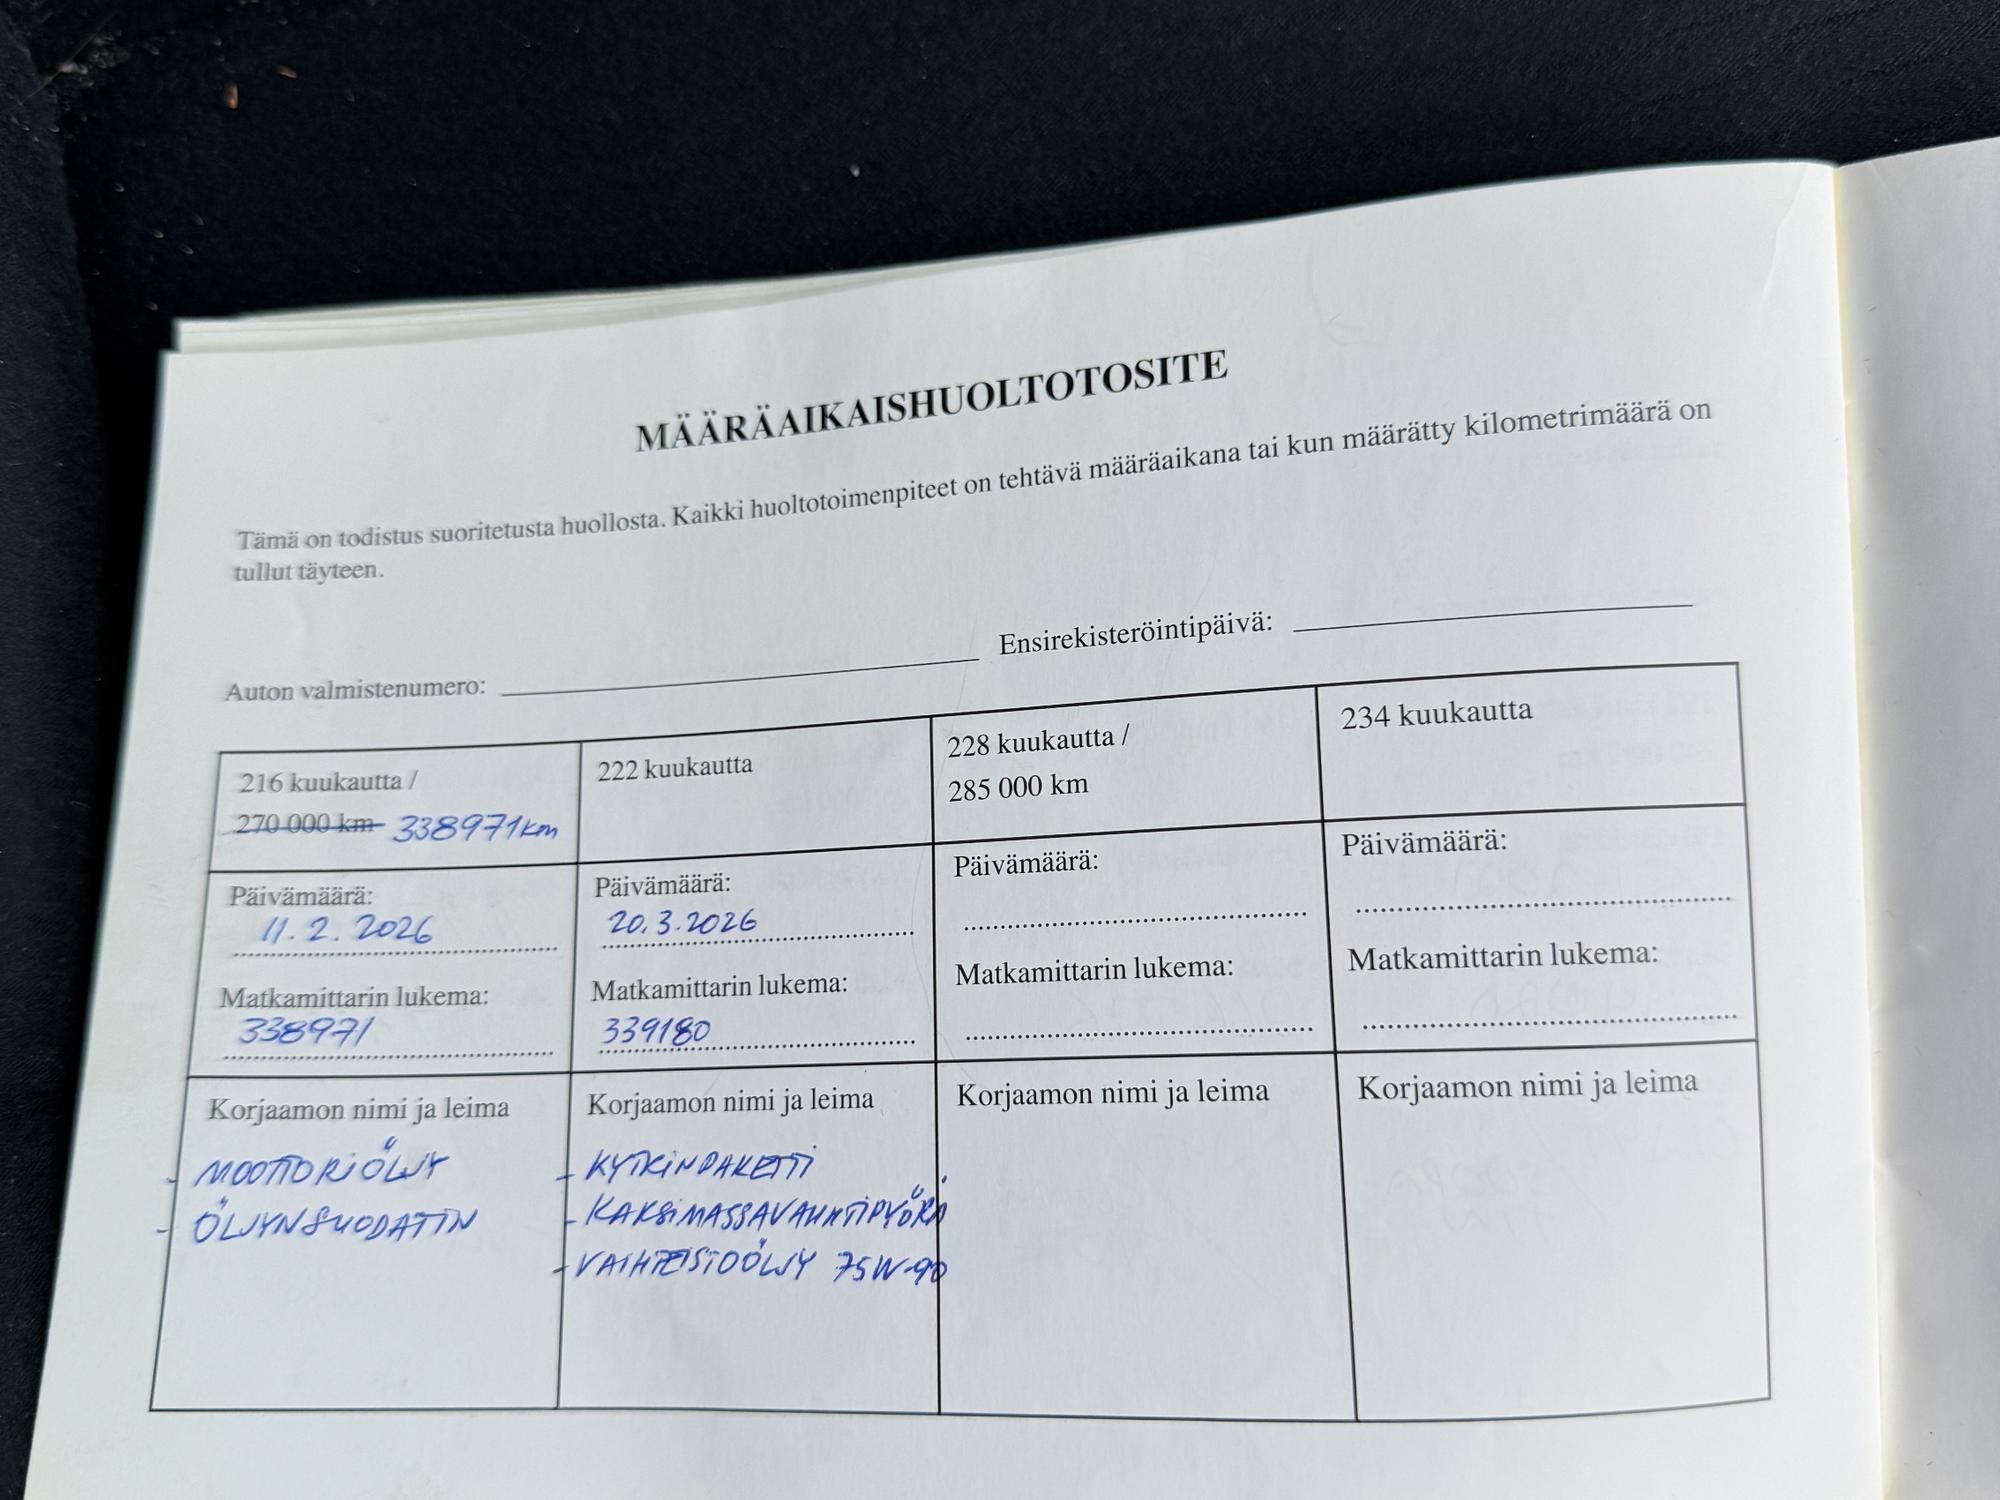 MÄÄRÄAIKAISHUOLTOTOSITE
Tämä on todistus suoritetusta huollosta. Kaikki huoltotoimenpiteet on tehtävä määräaikana tai kun määrätty kilometrimäärä on
tullut täyteen.
Auton valmistenumero:
Ensirekisteröintipäivä:
216 kuukautta /
270 000 km 338971km
Päivämäärä:
11.2.2026
Matkamittarin lukema:
338971
Korjaamon nimi ja leima
- MOOTTORIÖLJY
- ÖLJYNSUODATIN
222 kuukautta
Päivämäärä:
20.3.2026
Matkamittarin lukema:
339180
Korjaamon nimi ja leima
- KYTKINPAKETTI
- KAKSIMASSAVAUHTIPYÖRÄ
- VAIHTEISTOÖLJY 75W-90
228 kuukautta /
285 000 km
Päivämäärä:
Matkamittarin lukema:
Korjaamon nimi ja leima
234 kuukautta
Päivämäärä:
Matkamittarin lukema:
Korjaamon nimi ja leima